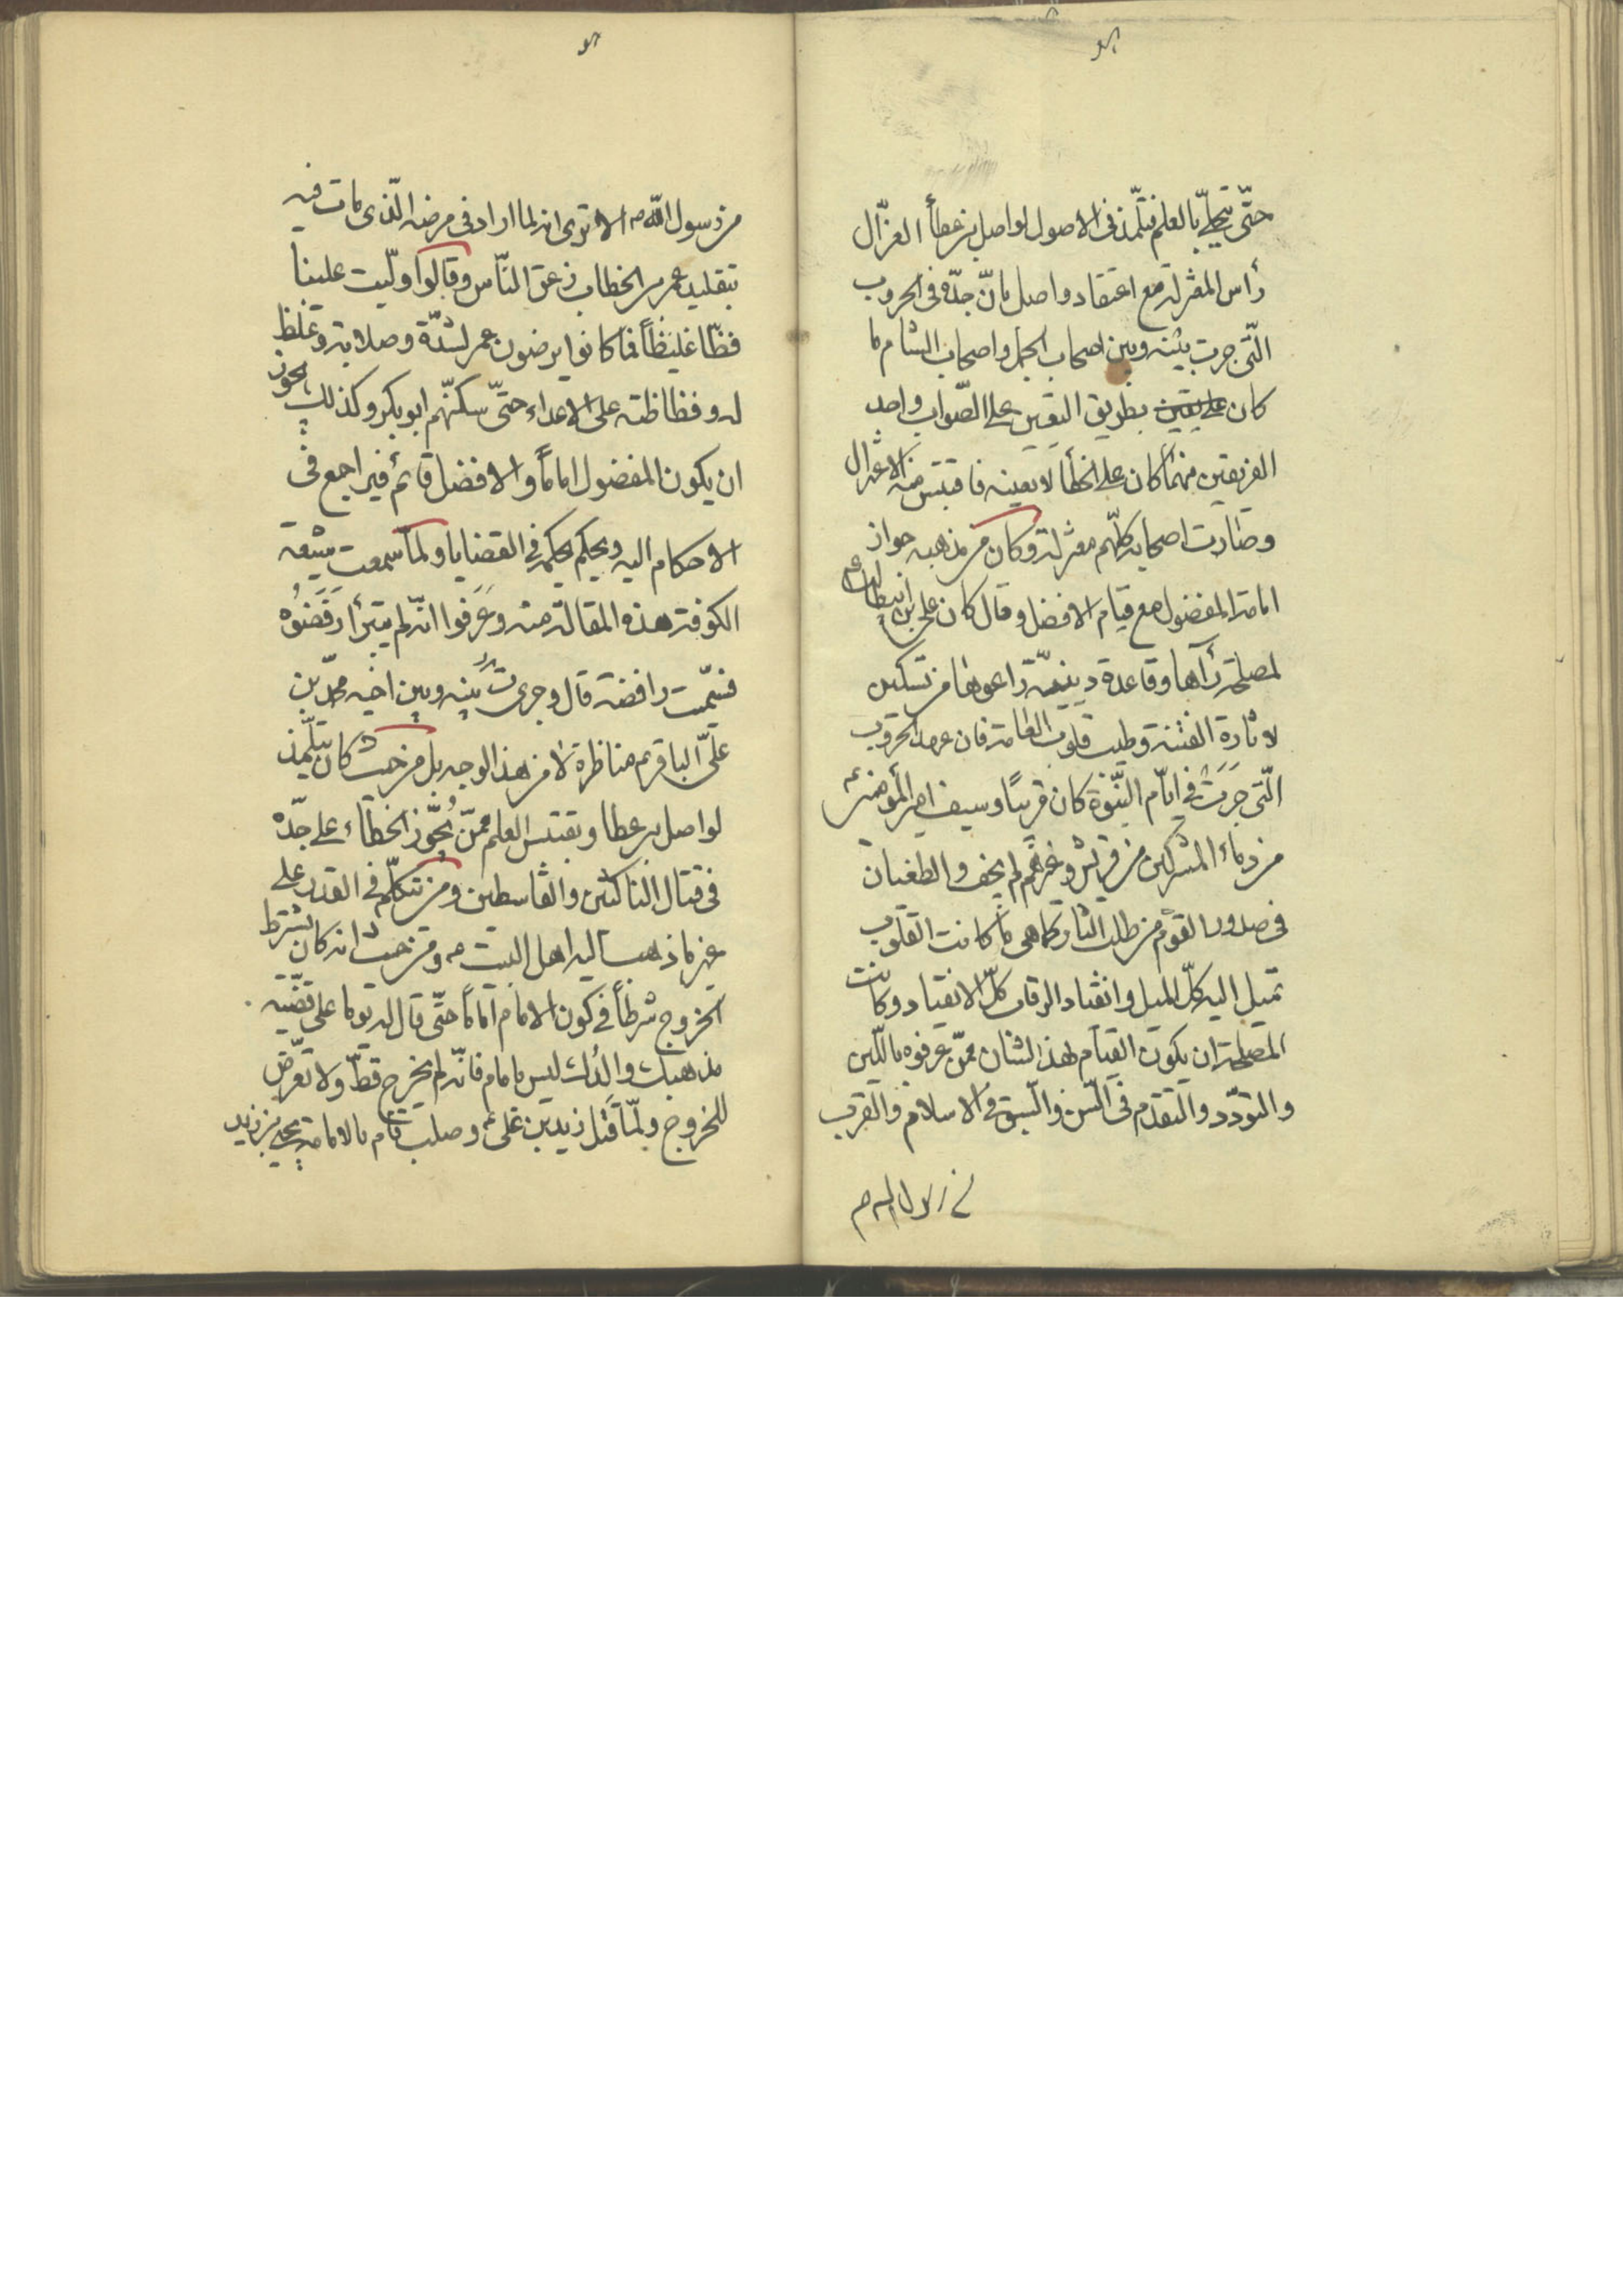 حتّى يتحلّى بالعلم فتلمّذ فى الاصول لواصل بن عطأ الغزّال
رأس المعتزلة مع اعتقاد واصل بانّ جدّه فى الحروب
الّتى جرت بينه وبين اصحاب الجمل واصحاب الشام ما
كان على يقين بطريق اليقين على الصّواب واحد
الفريقين منهما كان على الخطأ لا بعينه فاقتبس منه الاعتزال
وصارت اصحابه كلّهم معتزلة وكان من مذهبه جواز
امامة المفضول مع قيام الافضل وقال كان على بن ابيطالب ع
لمصلحة رآها وقاعدة دينيّة راعوها من تسكين
لاثارة الفتنة وطيب قلوب العامة فان عهد الحروب
الّتى جَرَت فى ايّام النّبوّة كان قريبًا وسيف امير المؤمنين ع
من دماء المشركين من قريش وغيرهم لم يجف والطغيان
فى صدور القوم من طلب الثار كما هى ما كانت القلوب
تميل اليه كلّ الميل وانقياد الرقاب كلّ الانقياد وكانت
المصلحة ان يكون القيام لهذا الشان ممّن عرفوه باللّين
والتودّد والتقدّم فى السّن والسّبق فى الاسلام والقرب
من رسول الله ص
من رسول الله ص الا ترى انه لما اراد فى مرضه الّذى مات فيه
بتقليد عمر بن الخطاب زعق النّاس وقالوا ولّيت علينا
فظّا غليظاً فما كانوا يرضون بعمر لشدّة وصلابة وغلظ
له وفظاظته على الاعداء حتّى سكنّهم ابو بكر وكذلك يجوز
ان يكون المفضول اماماً والافضل قائم فيراجع فى
الاحكام اليه ويحكم بحكمه فى القضايا ولمّا سمعت شيعة
الكوفة هذه المقالة منه وعَرَفوا انّه لم يتبرّأ رَفَضُوه
فسمّيت رافضة قال وجرى ت بينه وبين اخيه محمّد بن
علىّ الباقر ع مناظرة لا من هذا الوجه بل من حيث كان يتلمّذ
لواصل بن عطا ويقتبس العلم ممّن يُجَوّز الخطاء على جدّه
فى قتال الناكثين والقاسطين ومن يتكلّم فى القدر على
غير ما ذهب اليه اهل البيت ع ومن حيث انه كان يشترط
الخروج شرطاً فى كون الامام اماماً حتّى قال له يوما على قضيّة
مذهبك والدُك ليس بامام فانّه لم يخرج قطّ ولا تعرّض
للخروج ولمّا قُتِل زيد بن على ع وصلب قام بالامامة يحيى بن زيد